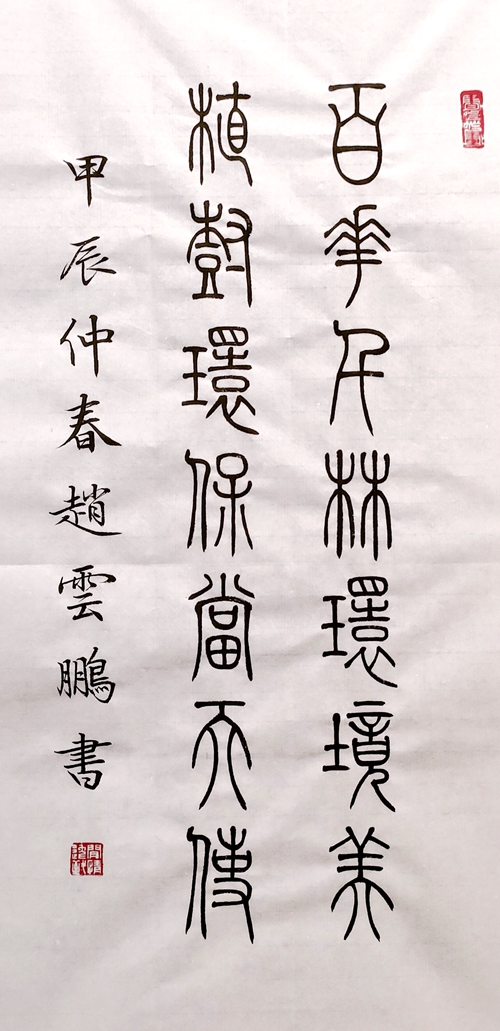 百華千林環境美
植樹環保當天使
甲辰仲春趙雲鵬書